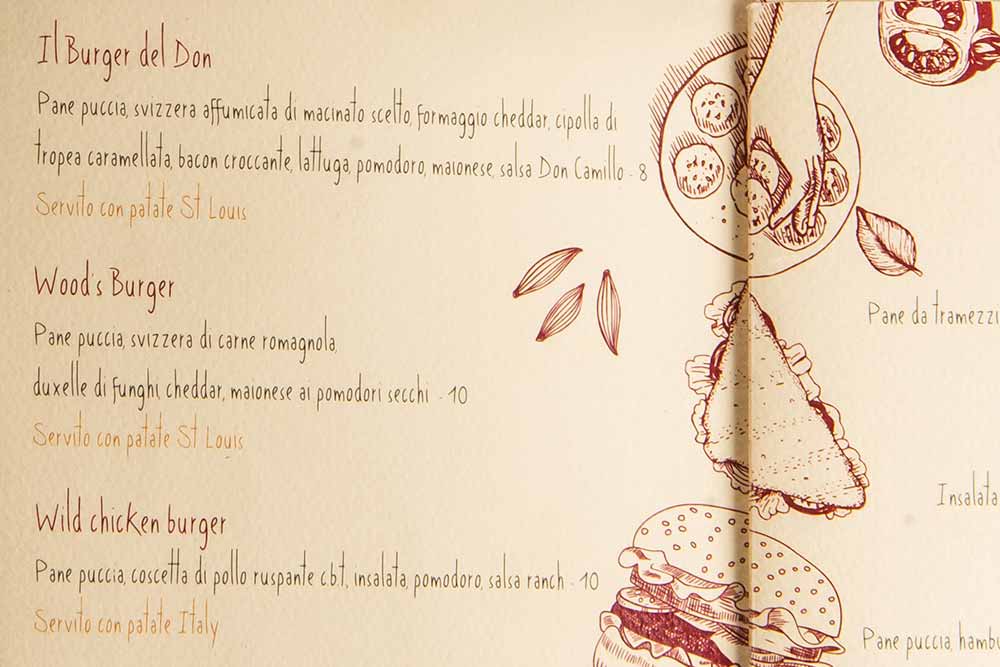 Il Burger del Don
Pane puccia, svizzera affumicata di macinato scelto, formaggio cheddar, cipolla di
tropea caramellata, bacon croccante, lattuga, pomodoro, maionese, salsa Don Camillo - 8
Servito con patate St Louis
Wood's Burger
Pane puccia, svizzera di carne romagnola,
duxelle di funghi, cheddar, maionese ai pomodori secchi - 10
Servito con patate St Louis
Wild chicken burger
Pane puccia, coscetta di pollo ruspante c.b.t., insalata, pomodoro, salsa ranch - 10
Servito con patate Italy
Pane da tramezzi
Insalata
Pane puccia, hambu